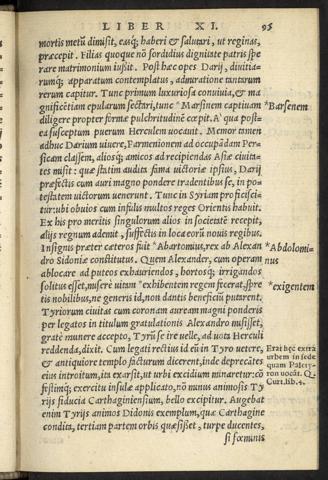 LIBER XI. 95
mortis metũ dimisit, easq́; haberi & salutari, ut reginas,
præcepit. Filias quoque nõ sordidius dignitate patris spe
rare matrimonium iussit. Post hæc opes Darij, diuitia-
rumq́; apparatum contemplatus, admiratione tantarum
rerum capitur. Tunc primum luxuriosa conuiuia, & ma
gnificẽtiam epularum sectari, tunc *Marsinem captiuam *Barsenem
diligere propter formæ pulchritudinẽ cœpit. A' qua post-
ea susceptum puerum Herculem uocauit. Memor tamen
adhuc Darium uiuere, Parmenionem ad occupãdam Per-
sicam classem, aliosq́; amicos ad recipiendas Asiæ ciuita-
tes misit: quæ statim audita fama uictoriæ ipsius, Darij
præfectis cum auri magno pondere tradentibus se, in po-
testatem uictorum uenerunt. Tunc in Syriam proficisci-
tur: ubi obuios cum infulis multos reges Orientis habuit.
Ex his pro meritis singulorum alios in societatẽ recepit,
alijs regnum ademit, suffectis in loca eorũ nouis regibus.
Insignis præter cæteros fuit *Abartomius, rex ab Alexan *Abdolomi-
dro Sidoniæ constitutus. Quem Alexander, cum operam nus
ablocare ad puteos exhauriendos, hortosq́; irrigandos
solitus esset, miserè uitam *exhibentem regem fecerat, spre *exigentem
tis nobilibus, ne generis id, non dantis beneficiũ putarent.
Tyriorum ciuitas cum coronam auream magni ponderis
per legatos in titulum gratulationis Alexandro misisset,
gratè munere accepto, Tyrũ se ire uelle, ad uota Herculi
reddenda, dixit. Cum legati rectius id eũ in Tyro uetere, Erat hęc extra
& antiquiore templo facturum dicerent, inde deprecãtes urbem in sede
eius introitum, ita exarsit, ut urbi excidium minaretur: cõ quam Palętyron uocãt. Q.
festimq́; exercitu insulæ applicato, nõ minus animosis Ty Curt. lib. 4.
rijs fiducia Carthaginiensium, bello excipitur. Augebat
enim Tyrijs animos Didonis exemplum, quæ Carthagine
condita, tertiam partem orbis quæsisset, turpe ducentes,
si fœminis